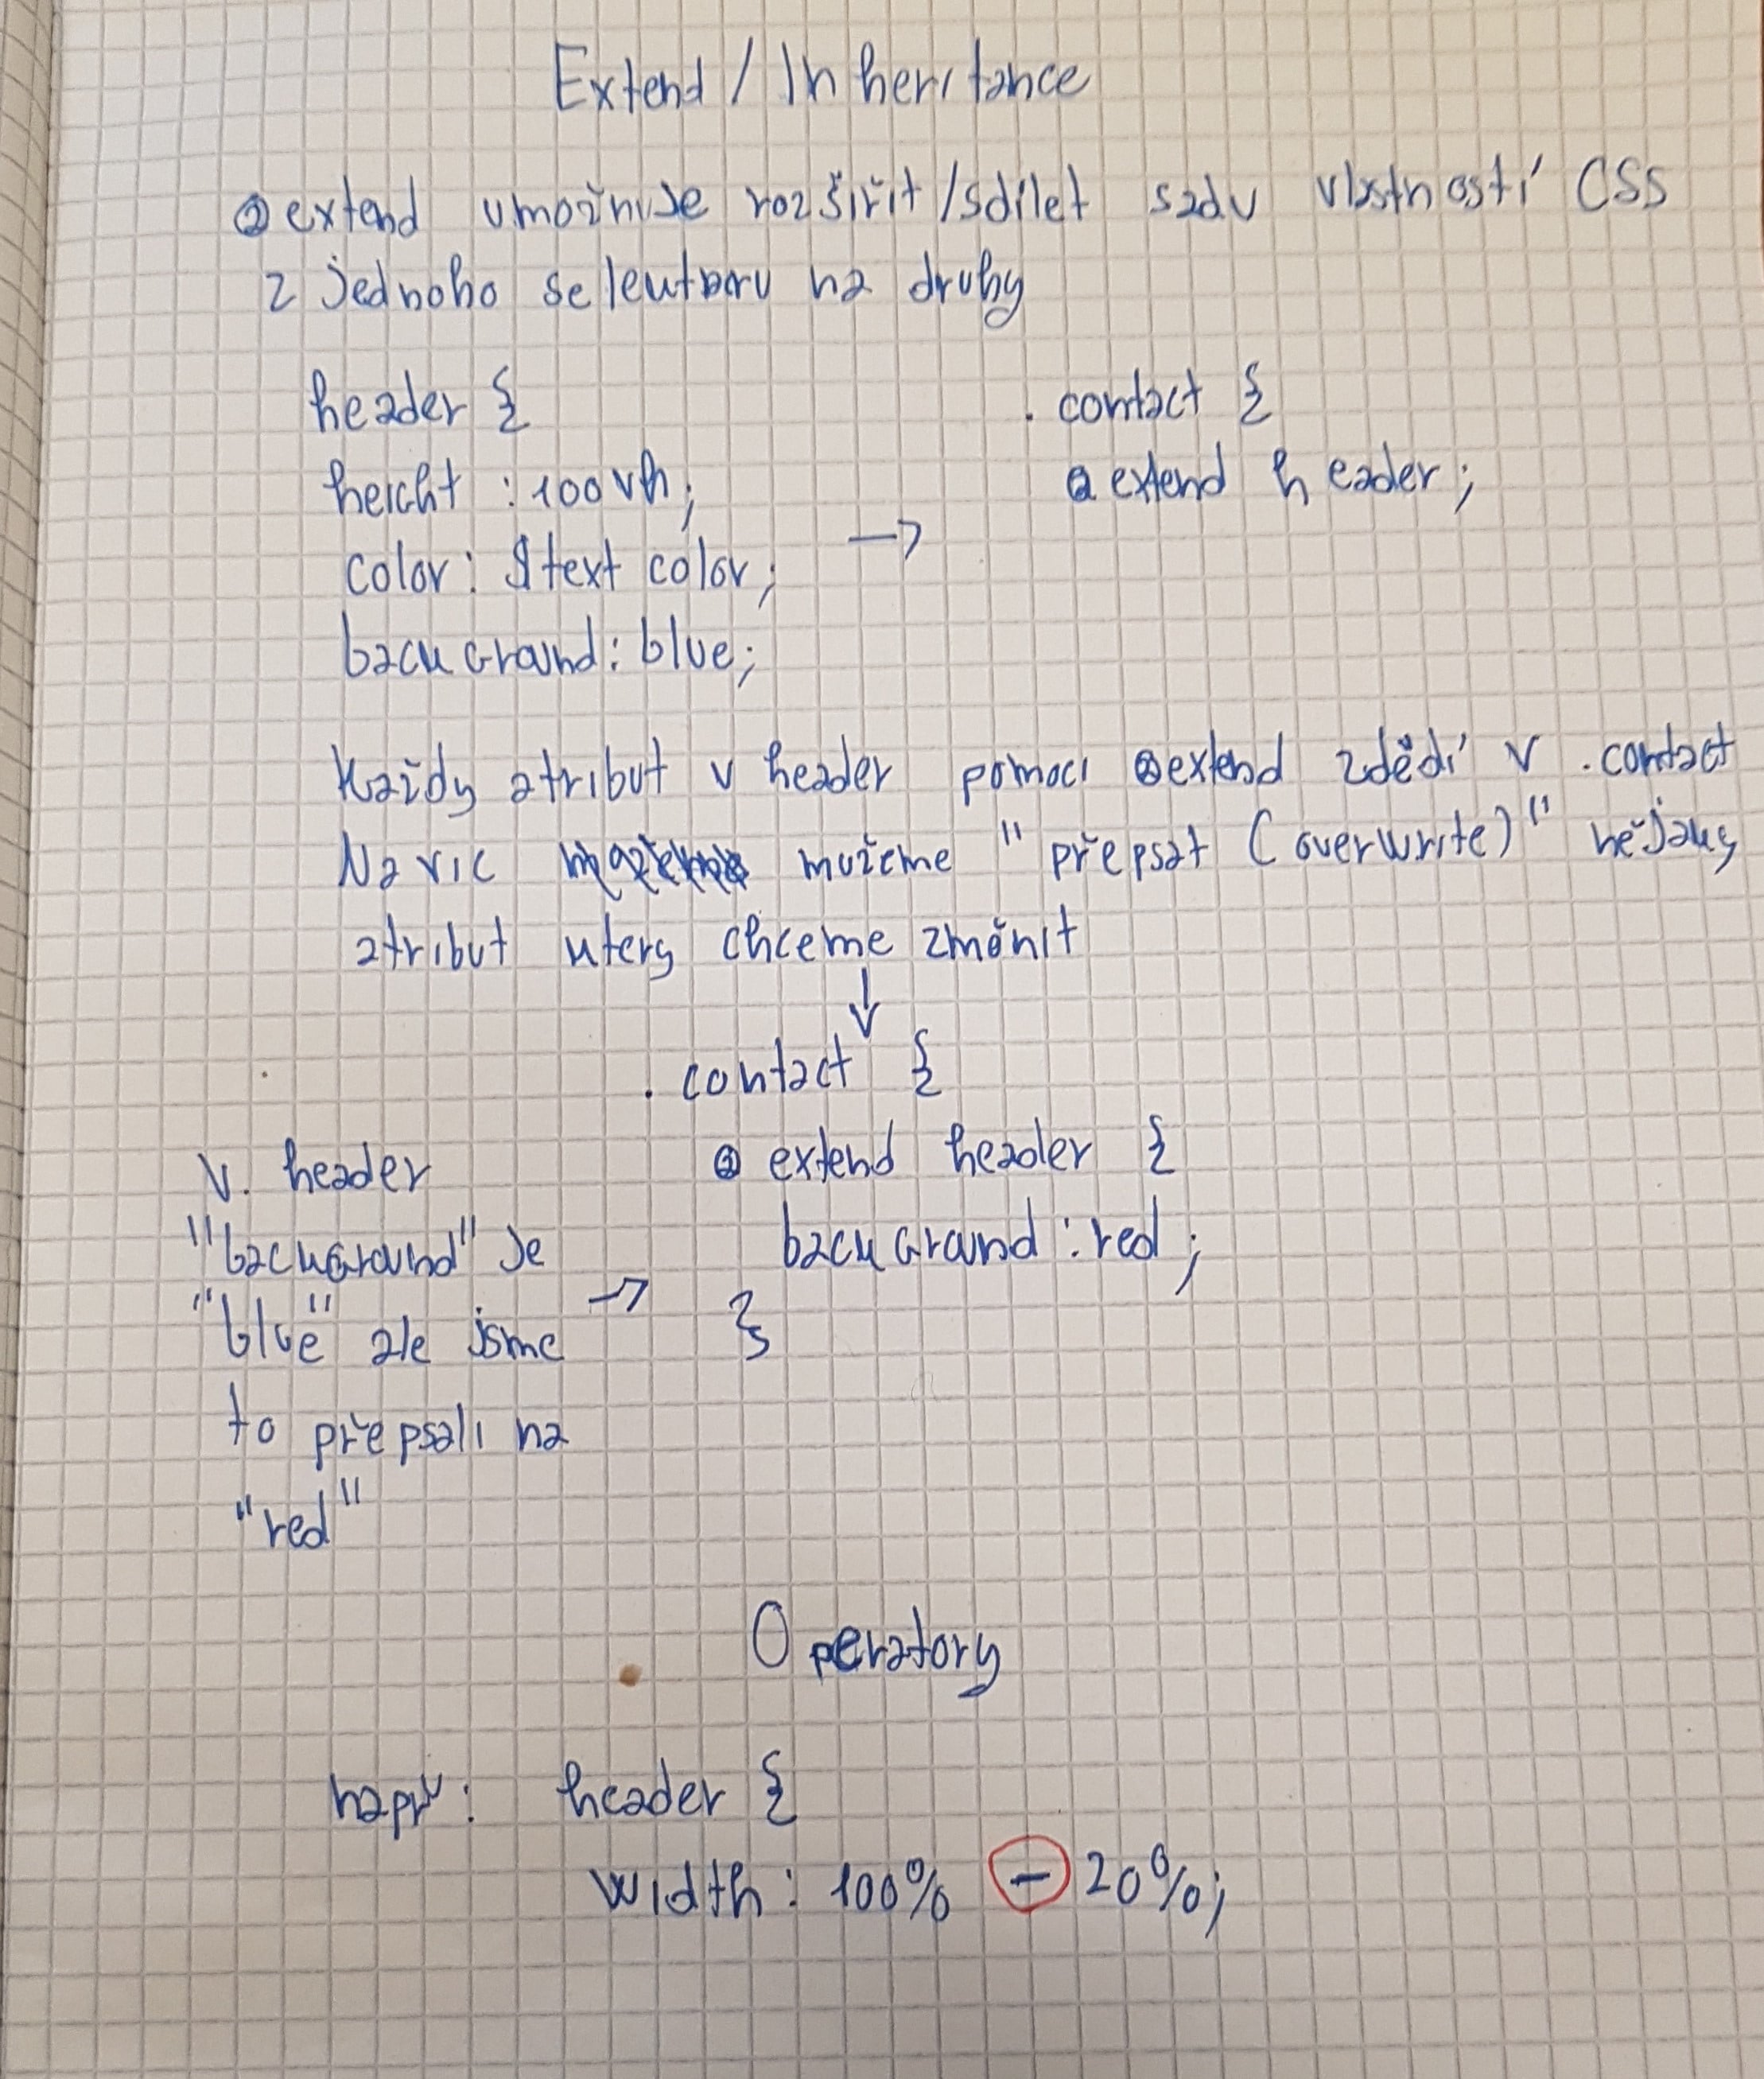 Extend / Inheritance
@extend umožnuje rozšířit /sdílet sadu vlastností CSS
z jednoho selektoru na druhy
header {
height : 100vh;
color: $text color;
background: blue;
→
. contact {
@ extend header;
Každy atribut v header pomoci @extend zdědí v .contact
Navic mužeme "přepsat (overwrite)" nějaky
atribut ktery chceme změnit
↓
. contact {
@ extend header {
background : red ;
}
V. header
"background" je
"blue" ale jsme →
to přepsali na
"red"
Operatory
např: header {
width : 100% - 20%;